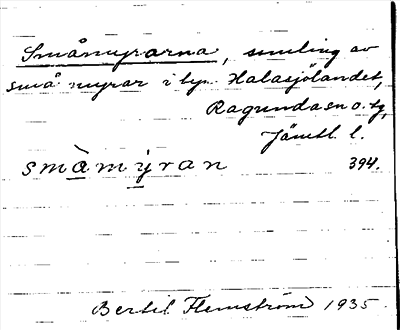 Småmyrarna, samling av
små myrar i byn Halasjölandet,
Ragunda sn o. tg,
Jämtl. l.
småmýran 394.
Bertil Flemström 1935.